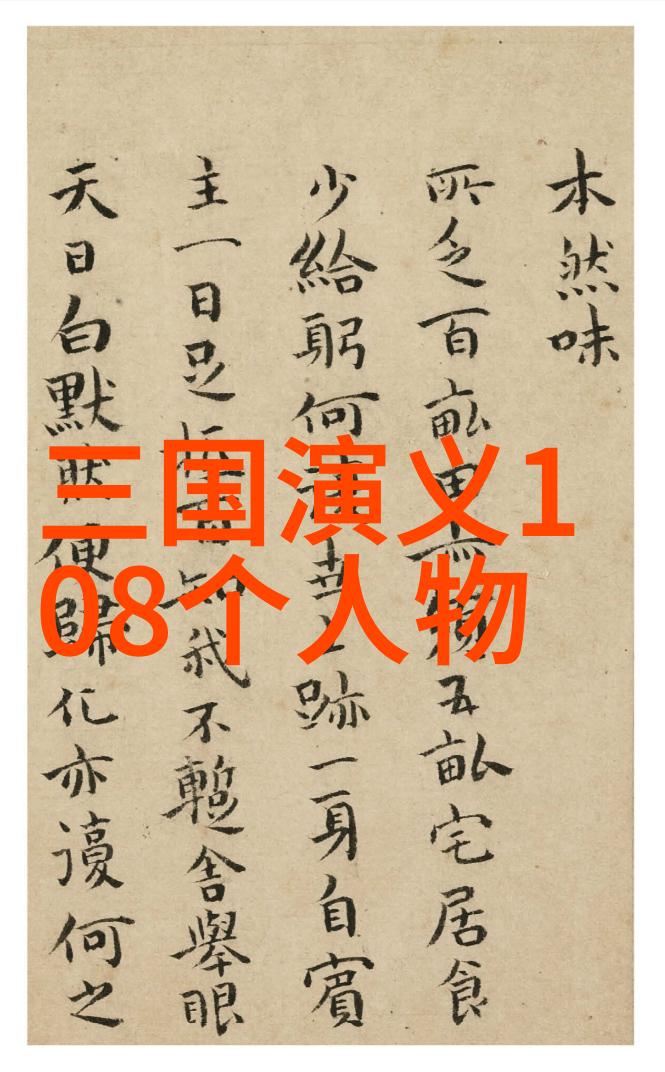 三国演义1
08个人物
本然味
所乏百畝田五畝宅居食
少給躬何世上跡一身自賓
主一日足知我不暫舍舉眼
天日白默然便歸化亦何之